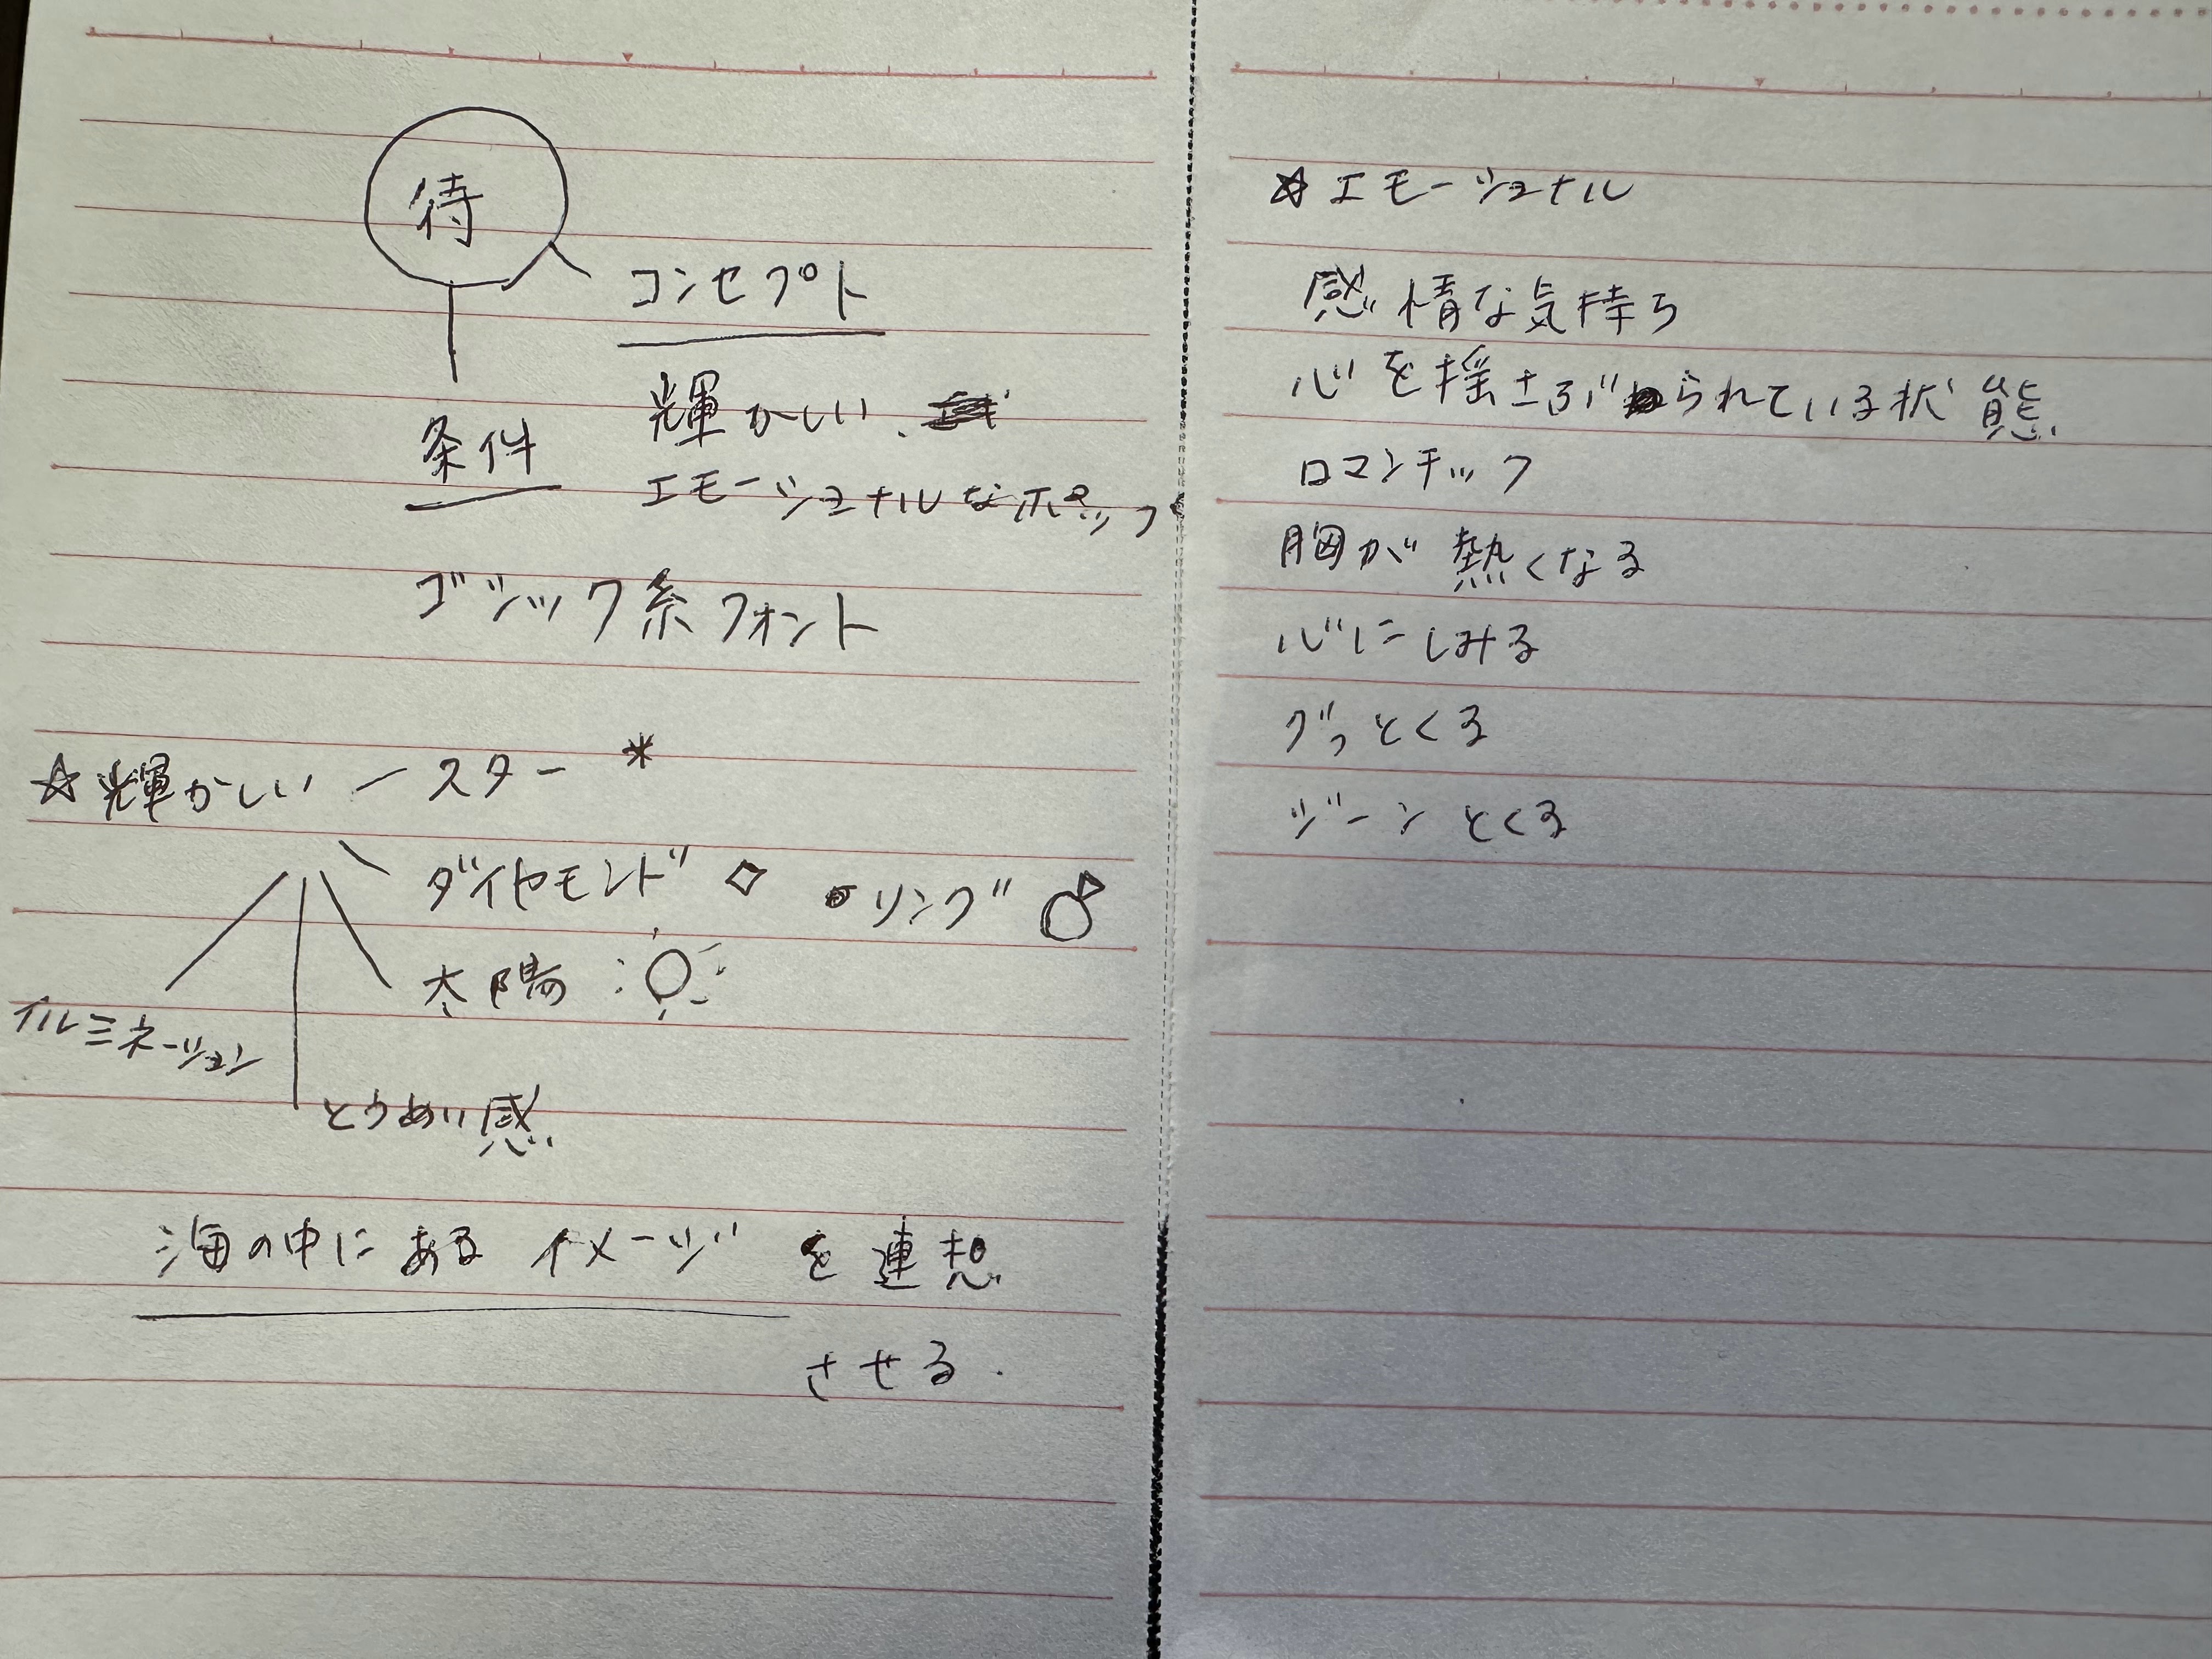 待
コンセプト
輝かしい、
エモーショナルなポップ
条件
ゴシック系フォント
☆輝かしい ー スター *
ダイヤモンド ◇ リング
太陽
イルミネーション
とうめい感
海の中にあるイメージを連想
させる.
☆エモーショナル
感情な気持ち
心を揺さぶられている状態
ロマンチック
胸が熱くなる
心にしみる
グッとくる
ジーンとくる